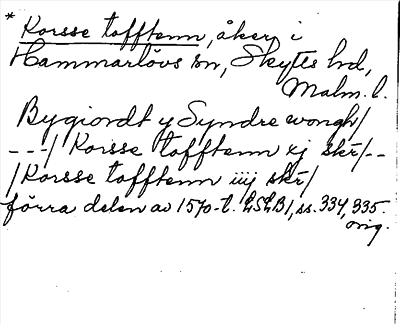 * Korsse tofftenn, åker i
Hammarlövs sn, Skytts hd,
Malm. l.
Bygiordt y Syndre wongh/
---/ Korsse tofftenn xj skr/--
/Korsse tofftenn iiij skr/
förra delen av 1570-t. LSLB1, ss. 334, 335.
orig.